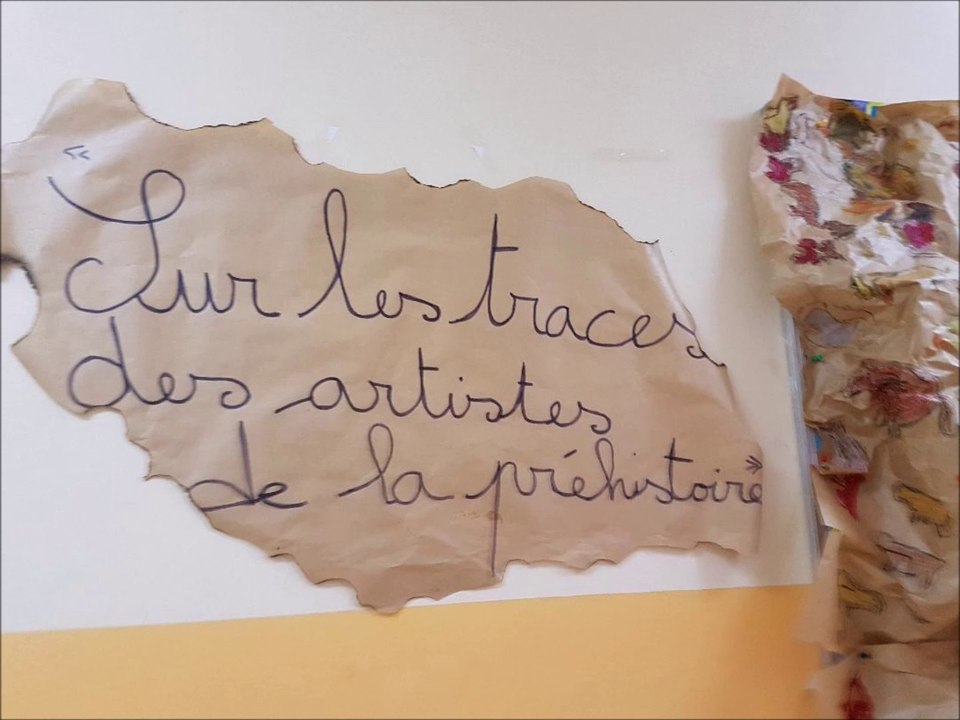 « Sur les traces
des artistes
de la préhistoire »